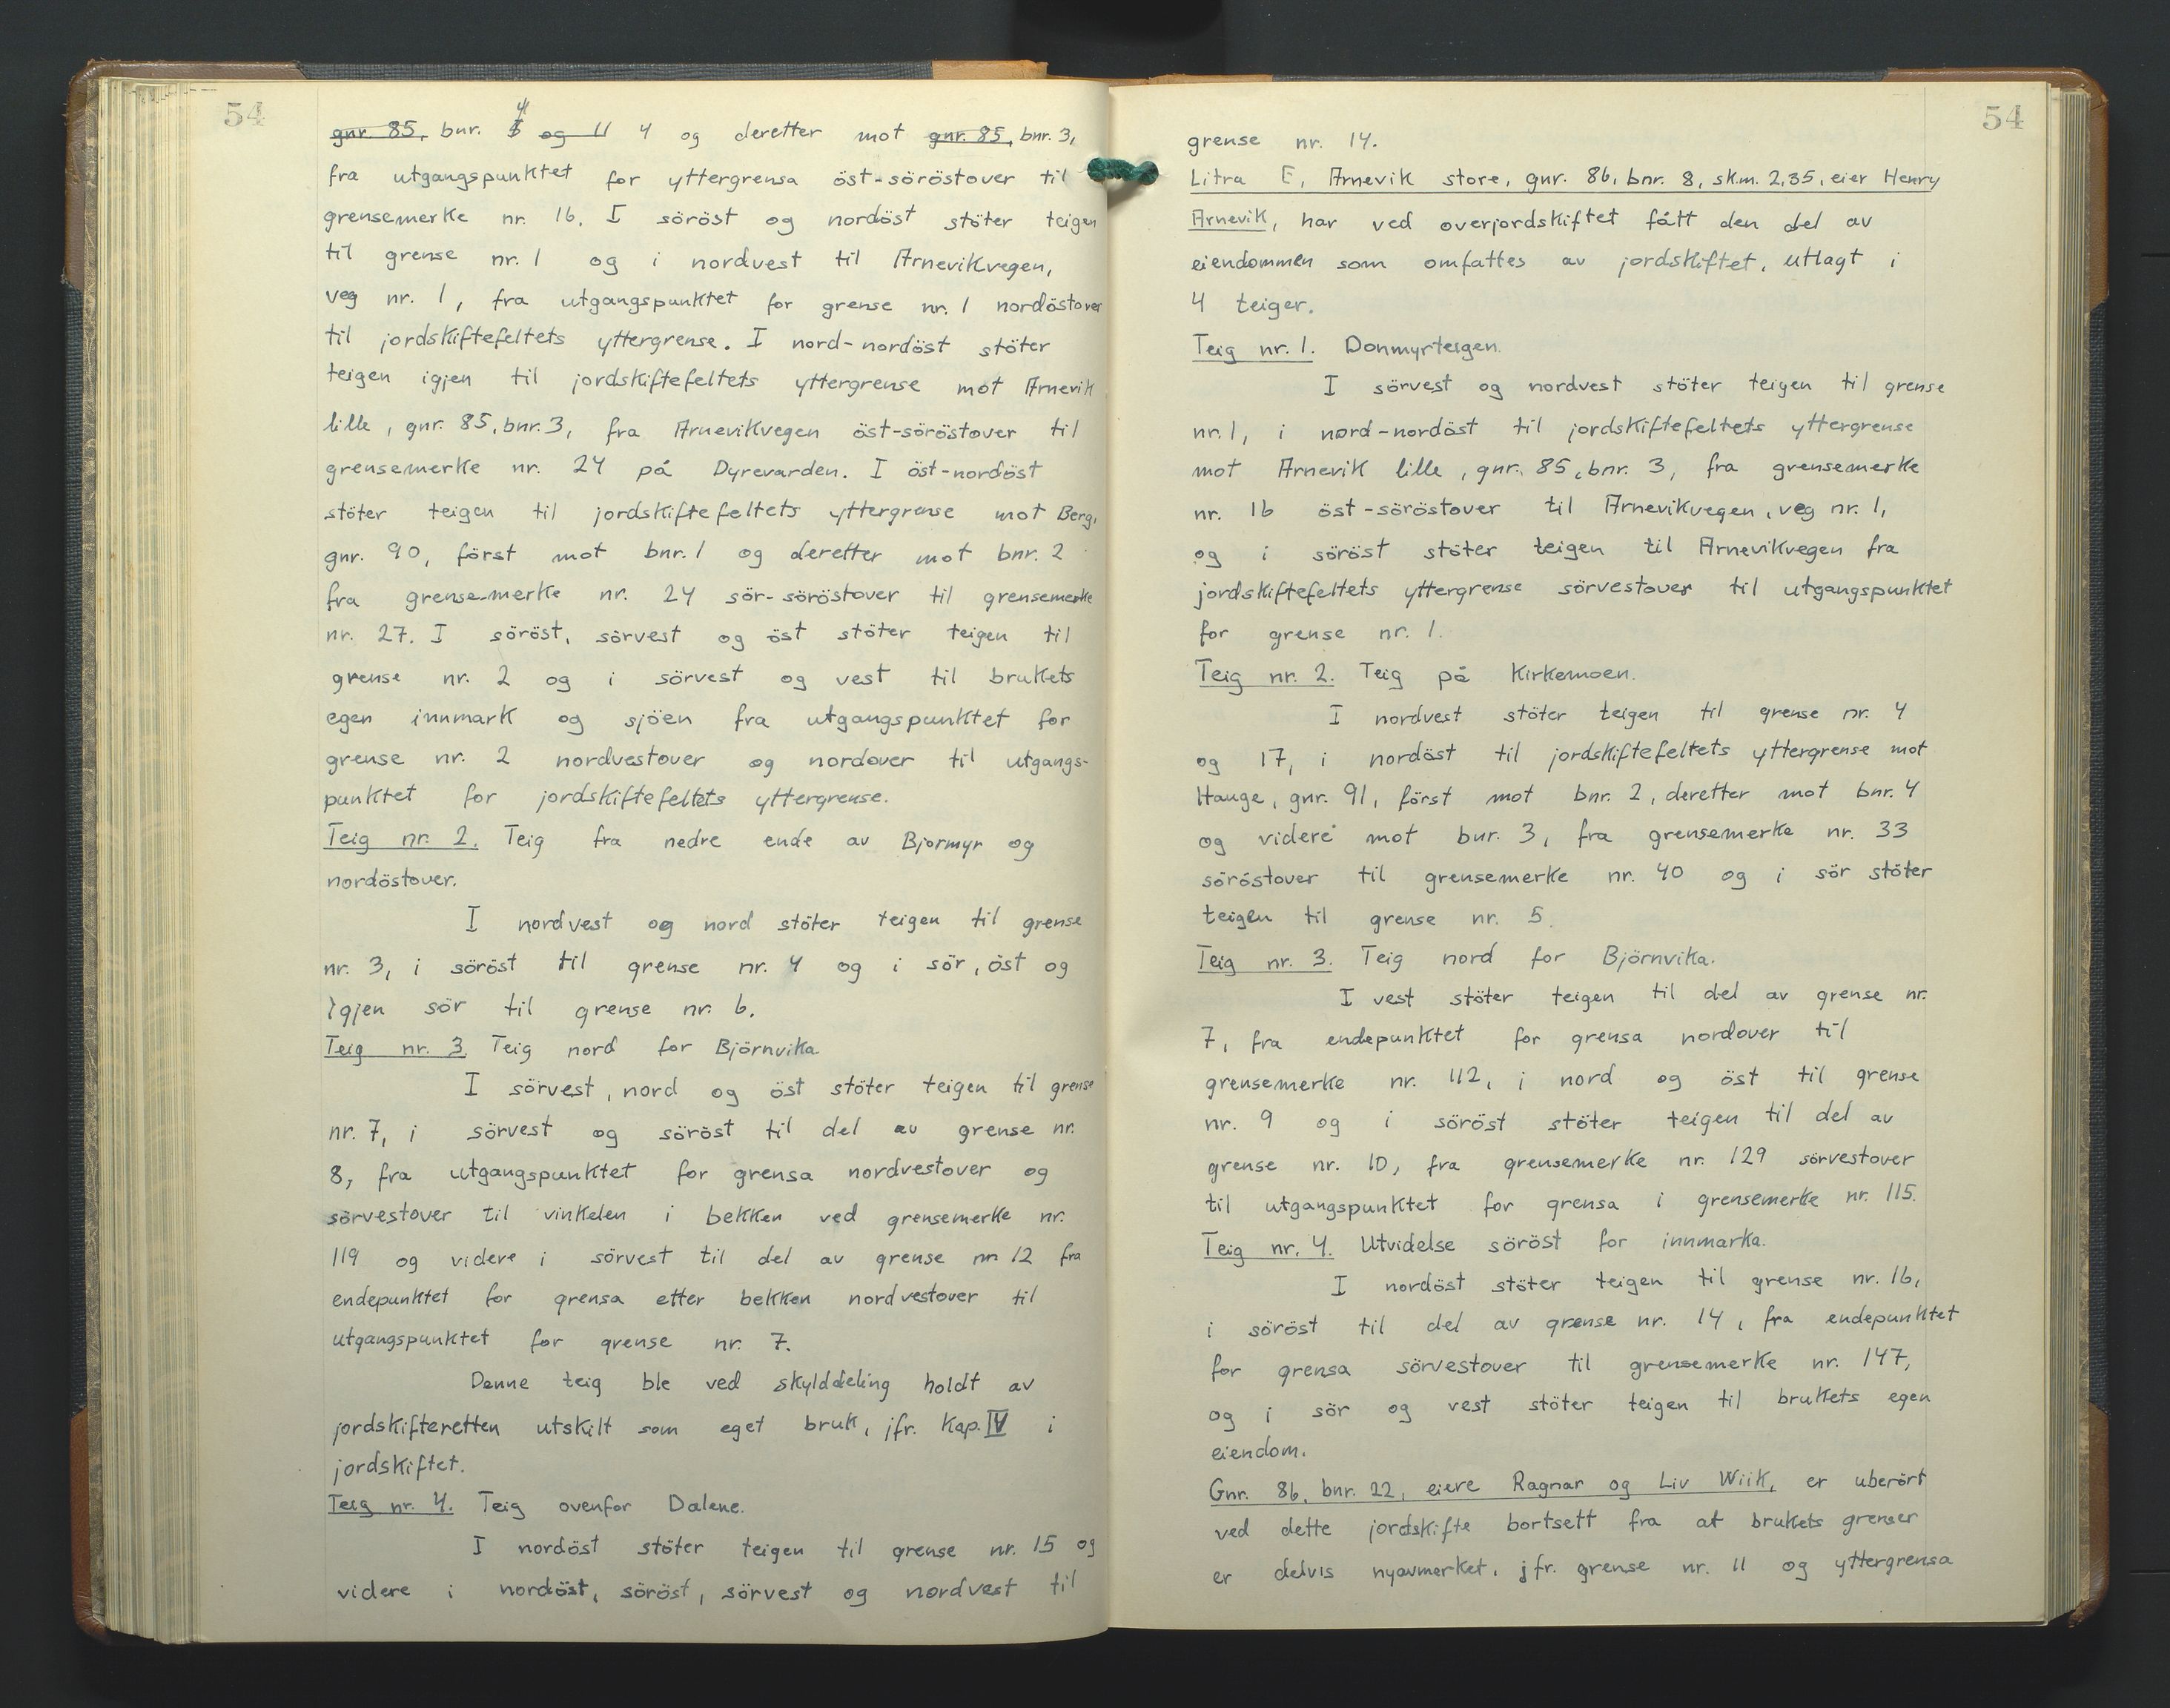 54
gnr. 85, bnr. 4 og 11 4 og deretter mot gnr. 85, bnr. 3,
fra utgangspunktet for yttergrensa öst-söröstover til
grensemerke nr. 16. I söröst og nordöst stöter teigen
til grense nr. 1 og i nordvest til Arnevikvegen,
veg nr. 1, fra utgangspunktet for grense nr. 1 nordöstover
til jordskiftefeltets yttergrense. I nord-nordöst stöter
teigen igjen til jordskiftefeltets yttergrense mot Arnevik
lille, gnr. 85, bnr. 3, fra Arnevikvegen öst-söröstover til
grensemerke nr. 24 på Dyrevarden. I öst-nordöst
stöter teigen til jordskiftefeltets yttergrense mot Berg,
gnr. 90, först mot bnr. 1 og deretter mot bnr. 2
fra grensemerke nr. 24 sör-söröstover til grensemerke
nr. 27. I söröst, sörvest og öst stöter teigen til
grense nr. 2 og i sörvest og vest til brukets
egen innmark og sjöen fra utgangspunktet for
grense nr. 2 nordvestover og nordover til utgangs-
punktet for jordskiftefeltets yttergrense.
Teig nr. 2. Teig fra nedre ende av Bjormyr og
nordöstover.
I nordvest og nord stöter teigen til grense
nr. 3, i söröst til grense nr. 4 og i sör, öst og
igjen sör til grense nr. 6.
Teig nr. 3. Teig nord for Björnvika.
I sörvest, nord og öst stöter teigen til grense
nr. 7, i sörvest og söröst til del av grense nr.
8, fra utgangspunktet for grensa nordvestover og
sörvestover til vinkelen i bekken ved grensemerke nr.
119 og videre i sörvest til del av grense nr. 12 fra
endepunktet for grensa etter bekken nordvestover til
utgangspunktet for grense nr. 7.
Denne teig ble ved skylddeling holdt av
jordskifteretten utskilt som eget bruk, jfr. Kap. IV i
jordskiftet.
Teig nr. 4. Teig ovenfor Dalene.
I nordöst stöter teigen til grense nr. 15 og
videre i nordöst, söröst, sörvest og nordvest til
54
grense nr. 14.
Litra E, Arnevik store, gnr. 86, bnr. 8, skm. 2,35, eier Henry
Arnevik, har ved overjordskiftet fått den del av
eiendommen som omfattes av jordskiftet, utlagt i
4 teiger.
Teig nr. 1. Donmyrteigen.
I sörvest og nordvest stöter teigen til grense
nr. 1, i nord-nordöst til jordskiftefeltets yttergrense
mot Arnevik lille, gnr. 85, bnr. 3, fra grensemerke
nr. 16 öst-söröstover til Arnevikvegen, veg nr. 1,
og i söröst stöter teigen til Arnevikvegen fra
jordskiftefeltets yttergrense sörvestover til utgangspunktet
for grense nr. 1.
Teig nr. 2. Teig på Kirkemoen.
I nordvest stöter teigen til grense nr. 4
og 17, i nordöst til jordskiftefeltets yttergrense mot
Hauge, gnr. 91, först mot bnr. 2, deretter mot bnr. 4
og videre mot bnr. 3, fra grensemerke nr. 33
söröstover til grensemerke nr. 40 og i sör stöter
teigen til grense nr. 5.
Teig nr. 3. Teig nord for Björnvika.
I vest stöter teigen til del av grense nr.
7, fra endepunktet for grensa nordover til
grensemerke nr. 112, i nord og öst til grense
nr. 9 og i söröst stöter teigen til del av
grense nr. 10, fra grensemerke nr. 129 sörvestover
til utgangspunktet for grensa i grensemerke nr. 115.
Teig nr. 4. Utvidelse söröst for innmarka.
I nordöst stöter teigen til grense nr. 16,
i söröst til del av grense nr. 14, fra endepunktet
for grensa sörvestover til grensemerke nr. 147,
og i sör og vest stöter teigen til brukets egen
eiendom.
Gnr. 86, bnr. 22, eiere Ragnar og Liv Wiik, er uberört
ved dette jordskifte bortsett fra at brukets grenser
er delvis nyavmerket, jfr. grense nr. 11 og yttergrensa